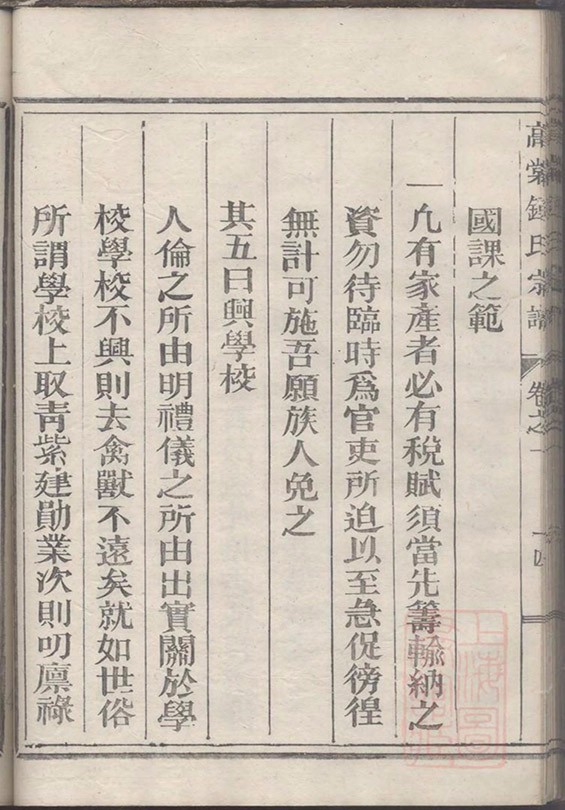 國課之範
一凢有家產者必有稅賦須當先籌輸納之
資勿待臨時爲官吏所迫以至急促徬徨
無計可施吾願族人免之
其五曰興學校
人倫之所由明禮儀之所由出實關於學
校學校不興則去禽獸不遠矣就如世俗
所謂學校上取靑紫建勛業次則叨廩祿